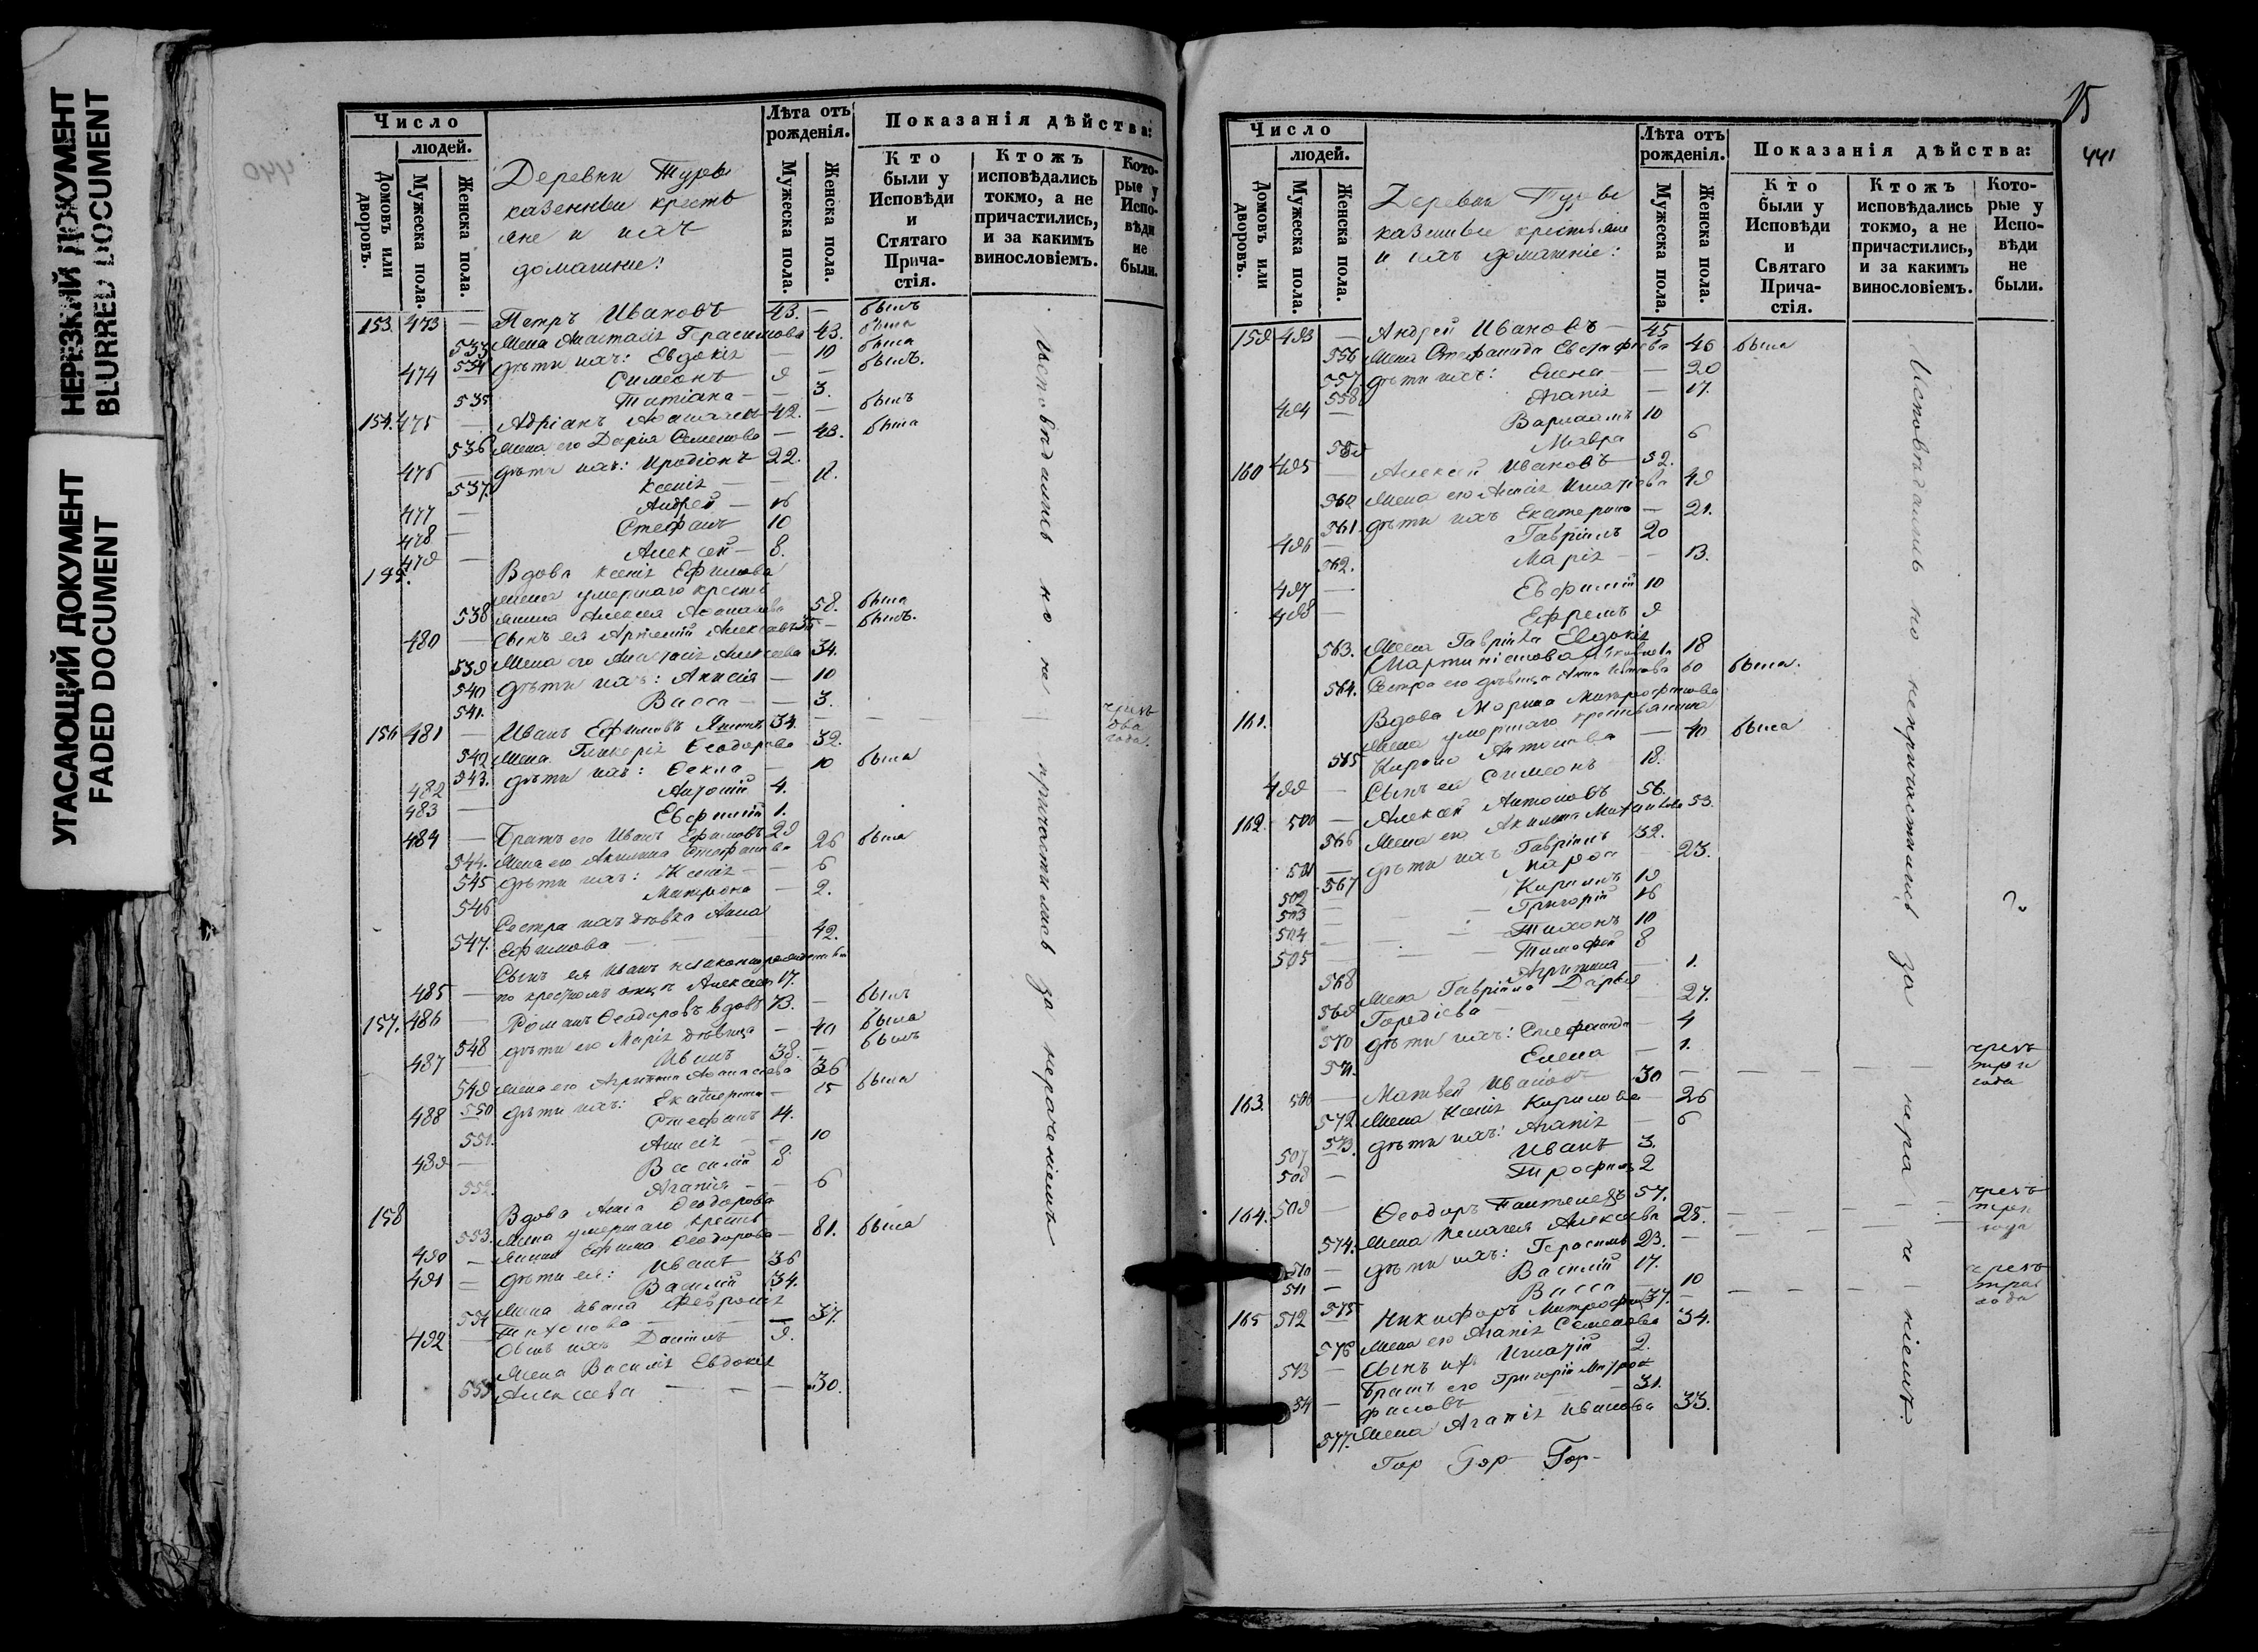 НЕРЕЗКИЙ ДОКУМЕНТ
BLURRED DOCUMENT
УГАСАЮЩИЙ ДОКУМЕНТ
FADED DOCUMENT
440
Число
людей.
Домовъ или дворовъ.
Мужеска пола.
Женска пола.
Деревни Туры
казенные кресть
яне и ихъ
домашніе:
Лѣта отъ рожденія.
Мужеска пола.
Женска пола.
Показанія дѣйства:
Кто были у Исповѣди и Стятаго Прича-стія.
Ктожъ исповѣдались токмо, а не причастились, и за какимъ винословіемъ.
Кото-рые у Испо-вѣди не были.
153. 473 — Петръ Ивановъ 43. — былъ
533 Жена Анастасія Герасимова 43. была
534 дѣти ихъ: Евдокія — 10 была
474 Симеонъ 9 — былъ.
535 Татіана — 3.
154. 475 — Адріанъ 42. — былъ
536 Жена его Дарія Семенова — 43. была
476 — дѣти ихъ: Иродіонъ 22.
537. Ксенія —
477 — Андрей — 16
478 — Стефанъ 10
479 — Алексей — 8.
155. Вдова Ксенія Ефимова
жена умершаго кресть
538 янина Алексея 58. была
480 — Сынъ ея Артемій 35 — былъ.
539 Жена его Анастасія Алексеева 34.
540 дѣти ихъ: Анисія — 10
541. Васса — 3.
156 481 — Иванъ Ефимовъ 34. — — чрезъ два года.
542 Жена Гликерія Ѳеодорова 32.
543. дѣти ихъ: Ѳекла — 10 была
482 Антоній 4.
483 — Евфимій 1.
484 — Братъ его Иванъ Ефимовъ 29
544. Жена его Акилина Стефанова 26 была
545 дѣти ихъ: Ксенія — 6
546 Матрона — 2.
Сестра ихъ дѣвка Анна
547. Ефимова — 42.
Сынъ ея Иванъ
485 — по крестномъ отцѣ Алексеевъ 17.
157. 486 — Романъ Ѳеодоровъ вдовъ 73. — былъ
548 дѣти его Марія дѣвица — 40 была
487 Иванъ 38. — былъ
549 Жена его Агрипина 36
550 дѣти ихъ: Екатерина — 15 была
488 Стефанъ 14.
551. Анисія — 10
489 — Василій 8
552. Агапія — 6
158 Вдова Анна Ѳеодорова
553. Жена умершаго кресть
янина Ефима Ѳеодорова — 81. была
490 — дѣти ея: Иванъ 36
491 — Василій 34.
Жена Ивана Февронія
554 Тихонова — 37.
492 — Сынъ ихъ Даніилъ 9.
Жена Василія Евдокія
555 Алексеева — — — 30.
Исповѣдались но не причастились за нераченіемъ
15
441
Число
людей.
Домовъ или дворовъ.
Мужеска пола.
Женска пола.
Деревни Туры
казенные крестьяне
и ихъ домашніе:
Лѣта отъ рожденія.
Мужеска пола.
Женска пола.
Показанія дѣйства:
Кто были у Исповѣди и Святаго Прича-стія.
Ктожъ исповѣдались токмо, а не причастились, и за какимъ винословіемъ.
Кото-рые у Испо-вѣди не были.
159 493 — Андрей Ивановъ — 45
556 Жена Стефанида Евстафіева 46 была
557. дѣти ихъ: Елена — 20
558 Агапія — 17.
494 — Варлаамъ 10
559 Мавра 6
160 495 — Алексей Ивановъ 52.
560 Жена его Игнатіева 49
561. дѣти ихъ Екатерина — 21.
496 — Гавріилъ 20
562. Марія — 13.
497 — Евфимій 10
498 — Ефремъ 9
563. Жена Гавріила Евдокія
18
564. Сестра его дѣвица Анна Иванова 60 была.
161. Вдова Марина Митрофанова
Жена умершаго крестьянина
565 Кирила Антонова — 40 была
499 — Сынъ ея Симеонъ 18.
162. 500 — Алексей Антоновъ 56.
566 Жена его Акилина 53.
501 — дѣти ихъ Гавріилъ 32.
567 23.
502 — Кирилъ 19
503 — Григорій 16
504 — Тихонъ 10
505 — Тимофей 8
568 Агрипина — 1.
Жена Гавріила Дарья
569 Гордіева — 27.
570 дѣти ихъ: Стефанида — 4
571. Елена — 1.
163. 506 — Матвей Ивановъ 30 — — — — чрезъ три года
572 Жена Ксенія Кирилова — 26
573. дѣти ихъ: Агапія — 6
507 Иванъ 3.
508 — Трофимъ 2
164. 509 — Ѳеодоръ 57. — — — чрезъ три года
574. Жена Пелагея Алексеева 25.
510 — дѣти ихъ: Герасимъ 23. —
511 — Василій 17.
575 Васса — 10
165 512 Никифоръ 37. — — — чрезъ три года
576 Жена его Агапія Семенова 34.
513 — Сынъ ихъ Игнатій 2.
Братъ его Григорій Митро
514 — фановъ — 31.
577. Жена Агапія Иванова 33.
Исповѣдались но непричастились за нераченіемъ.
Гор Гор Гор